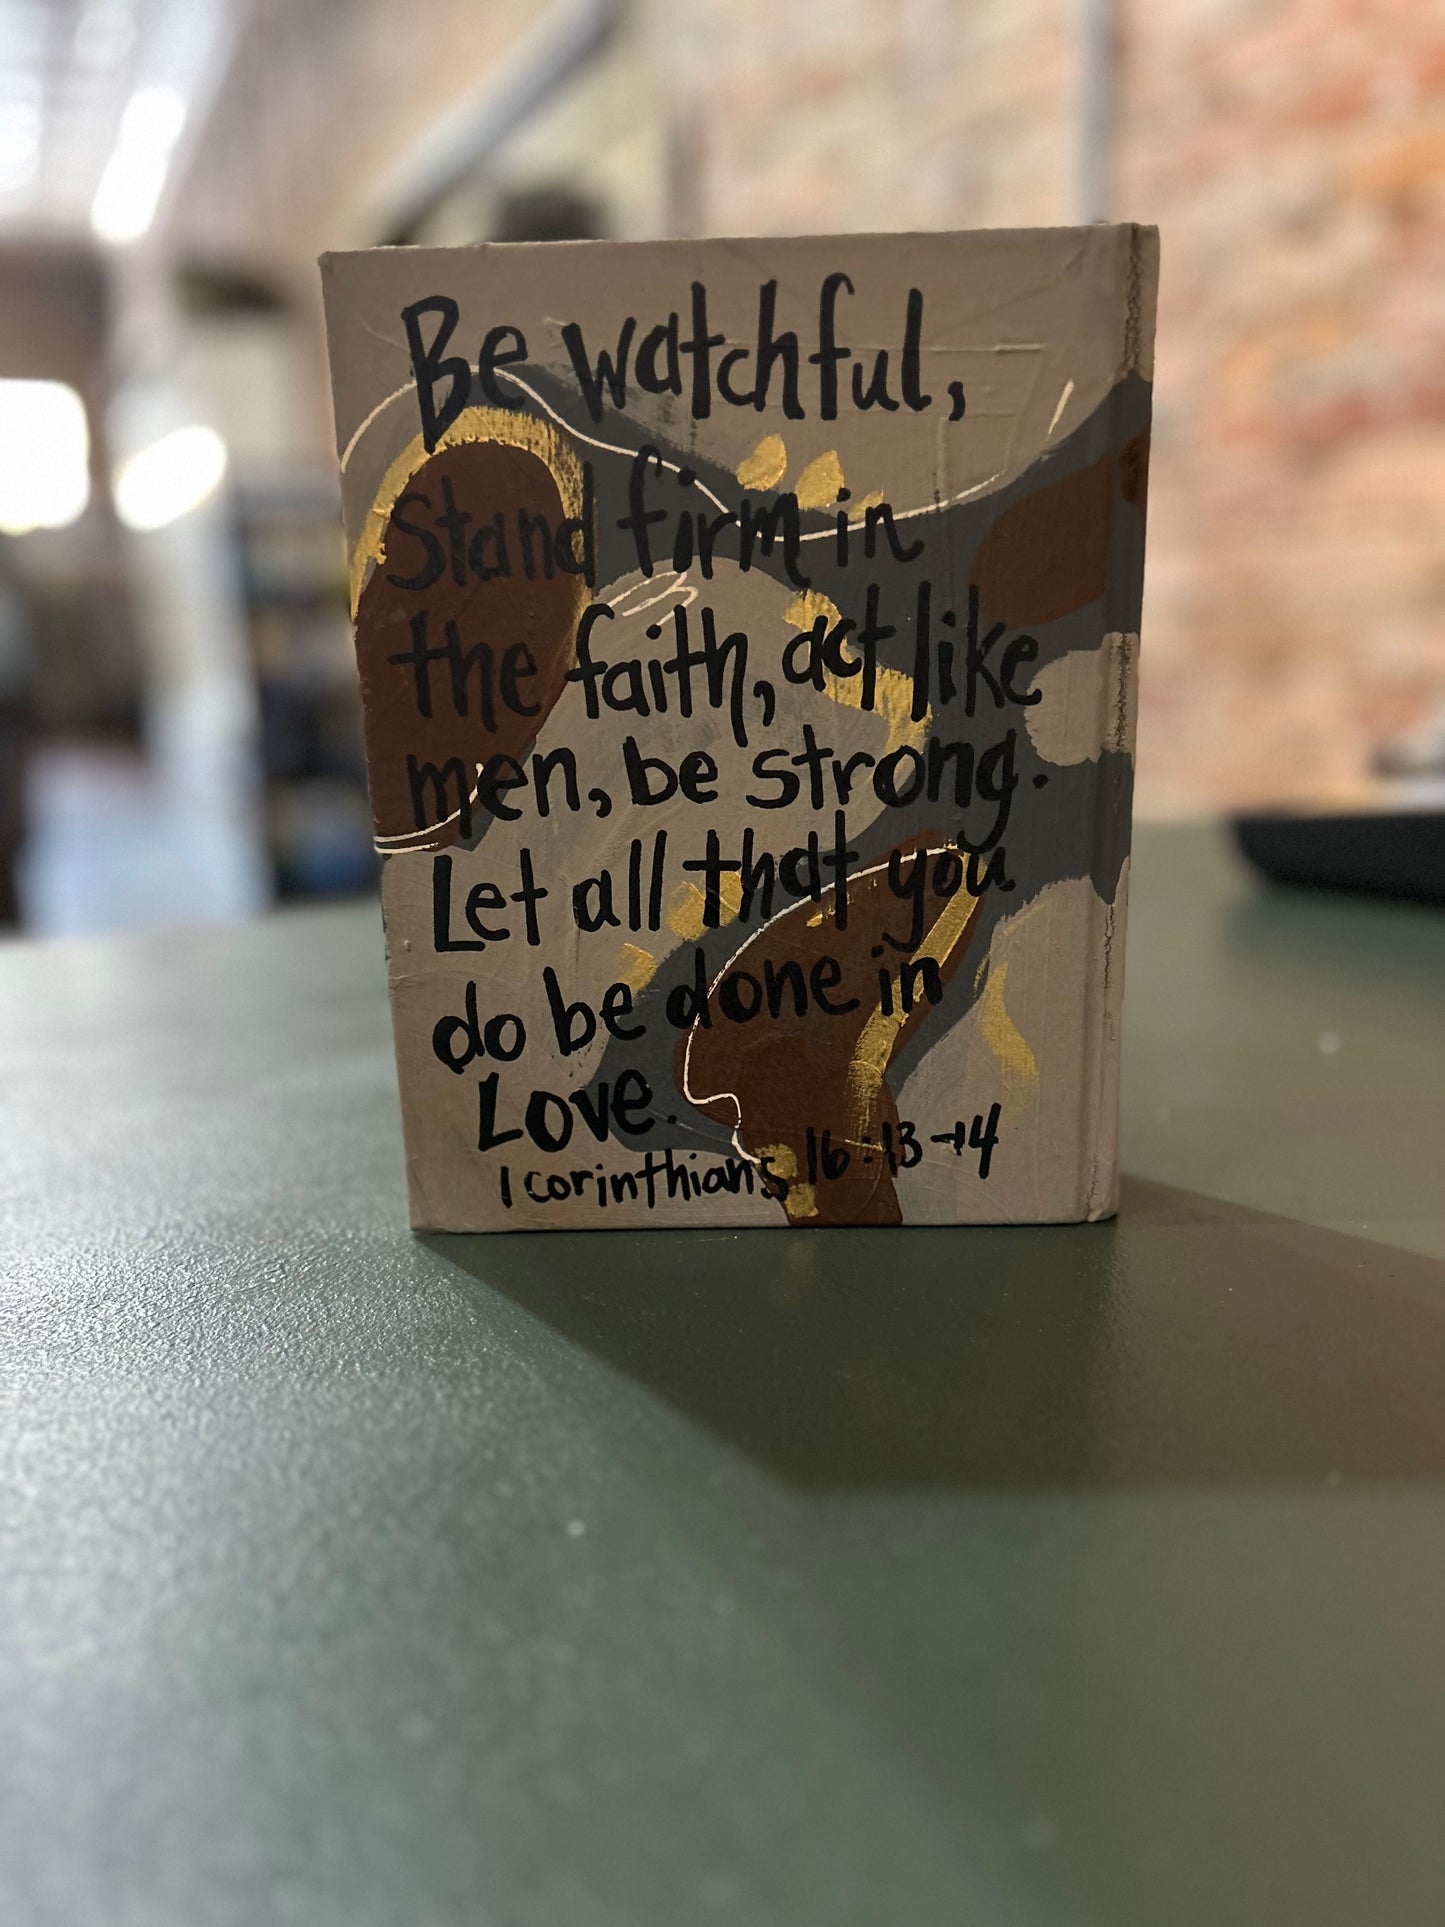 Be watchful,
Stand firm in
the faith, act like
men, be strong.
Let all that you
do be done in
Love.
1 corinthians 16:13-14